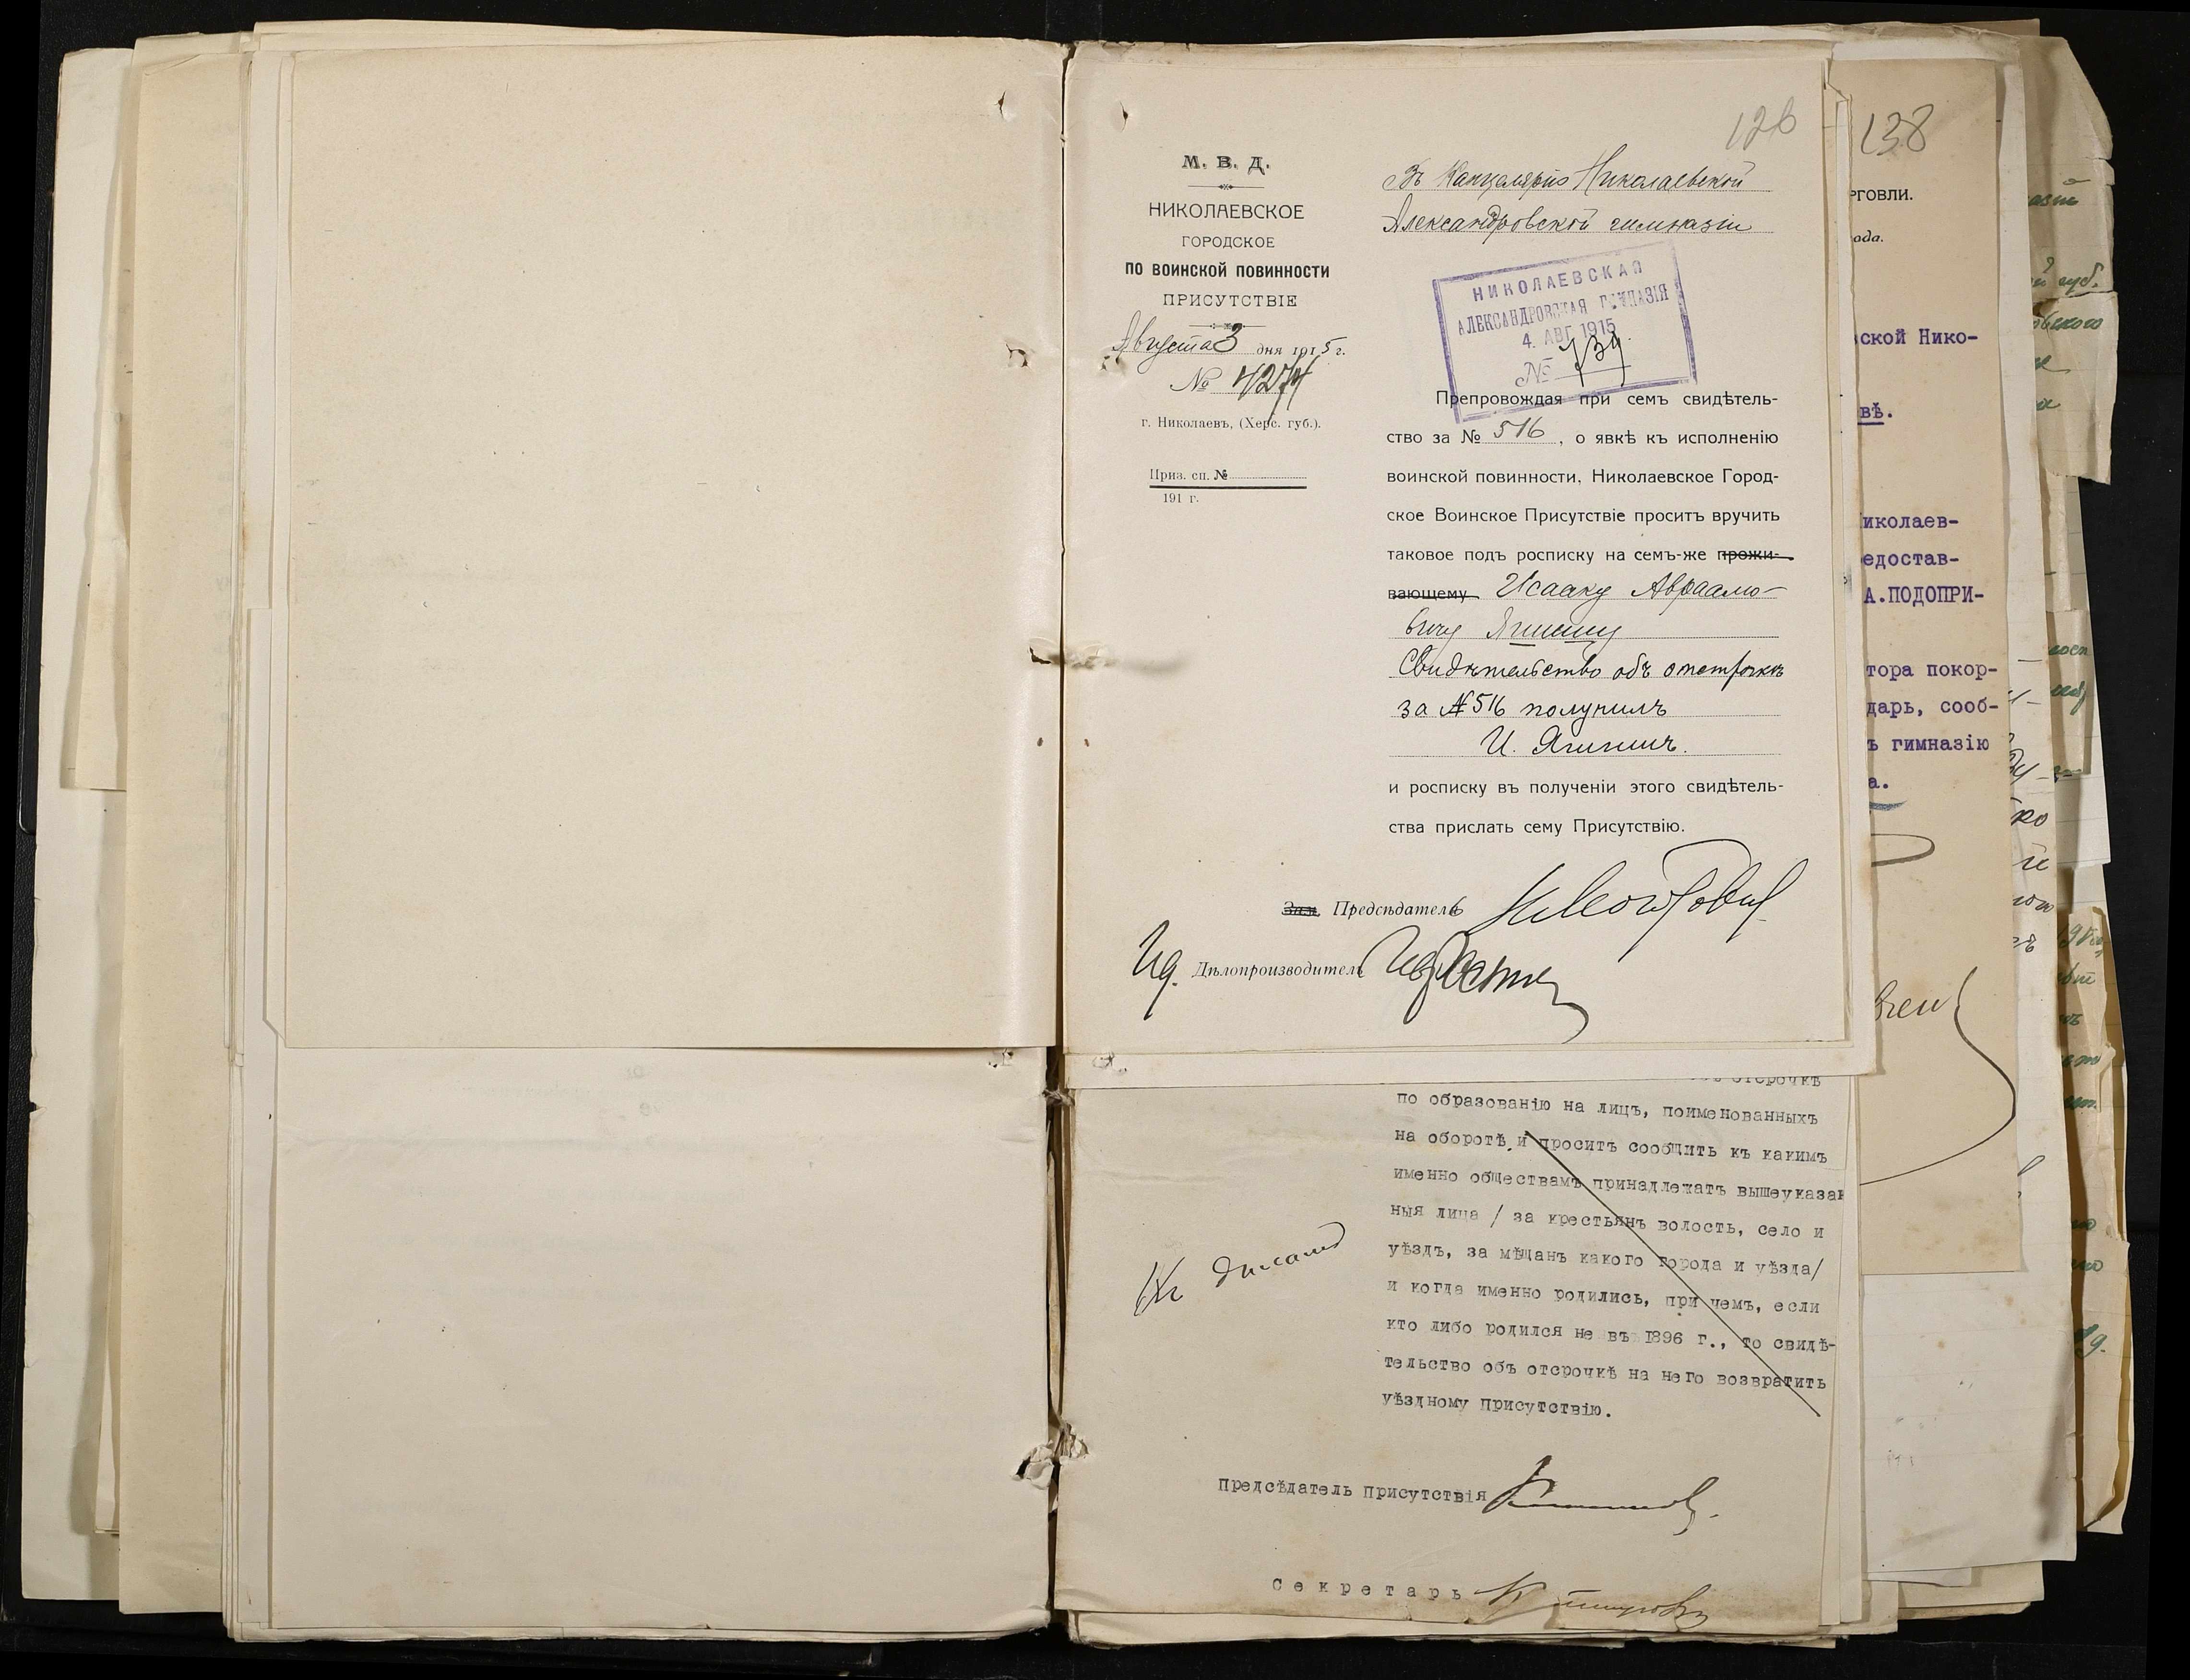 126
М. В. Д.
НИКОЛАЕВСКОЕ
ГОРОДСКОЕ
ПО ВОИНСКОЙ ПОВИННОСТИ
ПРИСУТСТВІЕ
Августа 3 дня 1915 г.
№ 4274
г. Николаевъ, (Херс. губ.).
Приз. сп. №
191 г.
Въ Канцелярію Николаевской
Александровской гимназіи
НИКОЛАЕВСКАЯ
АЛЕКСАНДРОВСКАЯ ГИМНАЗІЯ
4. АВГ. 1915
№ 739
Препровождая при семъ свидѣтель-
ство за № 516, о явкѣ къ исполненію
воинской повинности, Николаевское Город-
ское Воинское Присутствіе проситъ вручить
таковое подъ росписку на семъ-же прожи-
вающему Исааку Авраамо-
вичу
Свидѣтельство объ отстрочкѣ
за №516 получилъ
И.
и росписку въ полученіи этого свидѣтель-
ства прислать сему Присутствію.
Зам. Предсѣдатель
Ид. Дѣлопроизводитель
отсрочкѣ
по образованію на лицъ, поименованныхъ
на оборотѣ и проситъ сообщить къ какимъ
именно обществамъ принадлежатъ вышеуказан
ныя лица / за крестьянъ волость, село и
уѣздъ, за мѣщанъ какого города и уѣзда/
и когда именно родились, при чемъ, если
кто либо родился не въ 1896 г., то свидѣ-
тельство объ отсрочкѣ на него возвратить
уѣздному присутствію.
Предсѣдатель присутствія
Секретарь
138
РГОВЛИ.
ода.
вской Нико-
вѣ.
иколаев-
едостав-
А.ПОДОПРИ-
тора покор-
дарь, сооб-
ъ гимназію
а.